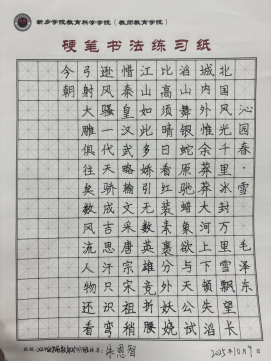 新乡学院教育科学学院（教师教育学院）
硬笔书法练习纸
沁园春·雪 毛泽东
北国风光千里冰封万里雪飘望长
城内外惟余莽莽大河上下顿失滔
滔山舞银蛇原驰蜡象欲与天公试
比高须晴日看红装素裹分外妖娆
江山如此多娇引无数英雄竞折腰
惜秦皇汉武略输文采唐宗宋祖稍
逊风骚一代天骄成吉思汗只识弯
弓射大雕俱往矣数风流人物还看
今朝
2025年10月9日